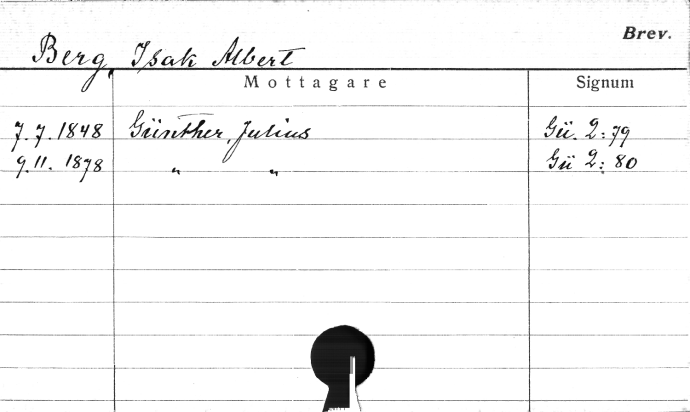 Brev.
Berg, Isak Albert
Mottagare Signum
7.7.1848 Günther, Julius Gü. 2:79
9.11.1878 " " Gü 2:80